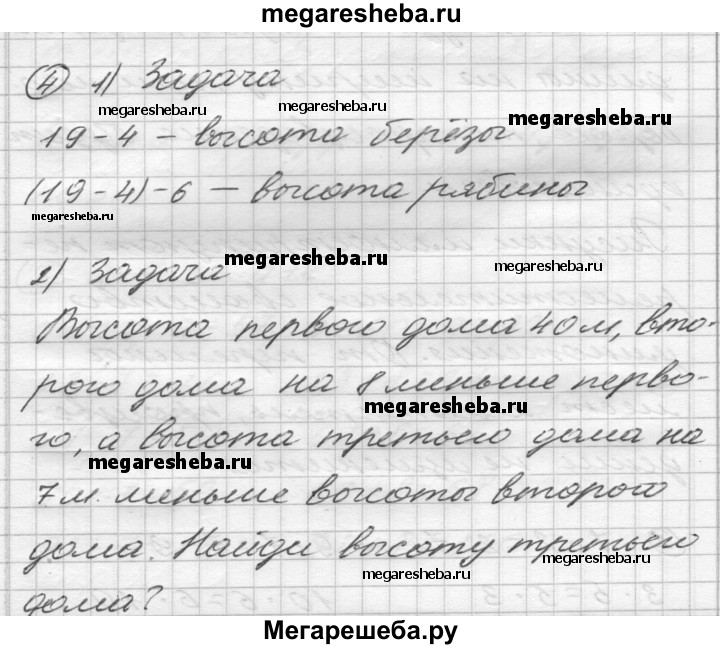 megaresheba.ru
④ 1) Задача
megaresheba.ru megaresheba.ru megaresheba.ru
19-4 - высота берёзы
(19-4)-6 - высота рябины
megaresheba.ru
megaresheba.ru megaresheba.ru
2) Задача
Высота первого дома 40 м, вто-
рого дома на 8 меньше перво-
megaresheba.ru
го, а высота третьего дома на
megaresheba.ru
7 м. меньше высоты второго
дома. Найди высоту третьего
megaresheba.ru megaresheba.ru
дома?
Мегарешеба.ру